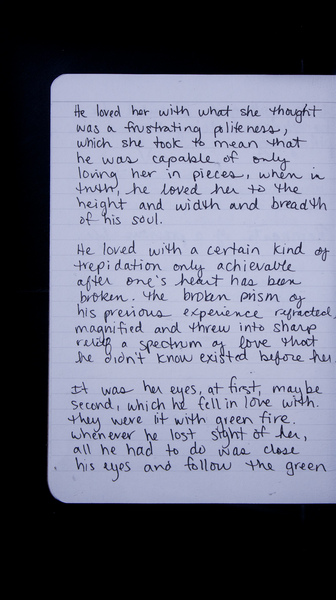 He loved her with what she thought
was a frustrating politeness,
which she took to mean that
he was capable of only
loving her in pieces, when in
truth, he loved her to the
height and width and breadth
of his soul.
He loved with a certain kind of
trepidation only achievable
after one's heart has been
broken. The broken prism of
his previous experience refracted,
magnified and threw into sharp
relief a spectrum of love that
he didn't know existed before her.
It was her eyes, at first, maybe
second, which he fell in love with.
They were lit with green fire.
Whenever he lost sight of her,
all he had to do was close
his eyes and follow the green